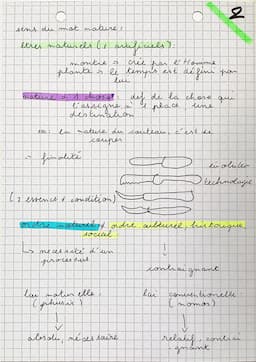 2
sens du mot nature:
êtres naturels (≠ artificiels):
montre → crée par l'Homme
plante → le temps est défini par
lui
nature = 1 chose: déf de la chose qui
l'assigne à 1 place, une
destination
ex: la nature du couteau, c'est de
couper
→ finalité
évolution
technologie
(≠ essence ≠ condition)
ordre naturel ≠ ordre culturel, historique,
social
↳ nécessité d'un
processus
contraignant
loi naturelle
(phusis)
loi conventionnelle
(nomos)
absolu, nécessaire
relatif, contrai
gnant